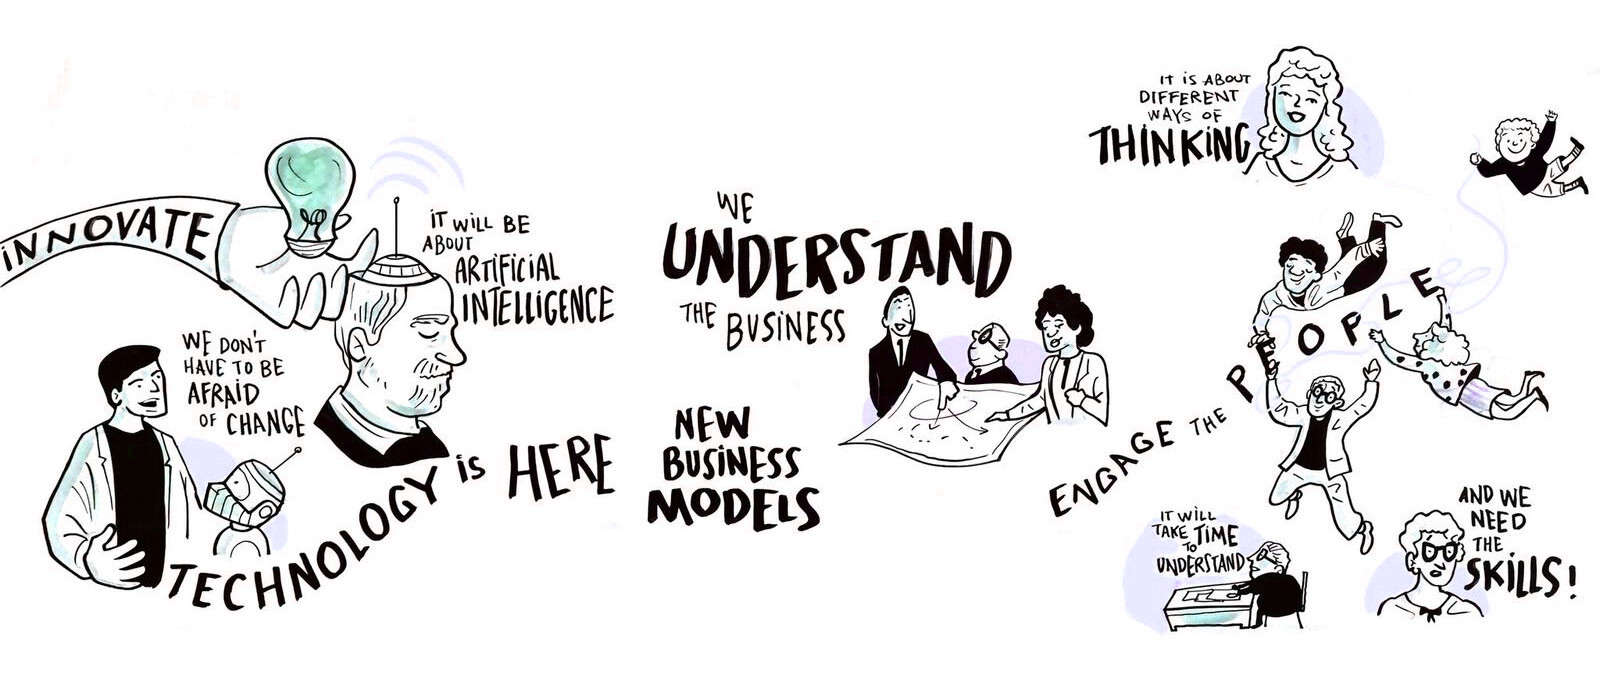 INNOVATE
IT WILL BE
ABOUT
ARTIFICIAL
INTELLIGENCE
WE DON'T
HAVE TO BE
AFRAID
OF CHANGE
TECHNOLOGY IS HERE
WE
UNDERSTAND
THE BUSINESS
NEW
BUSINESS
MODELS
IT IS ABOUT
DIFFERENT
WAYS OF
THINKING
ENGAGE THE PEOPLE
IT WILL
TAKE TIME
TO
UNDERSTAND
AND WE
NEED
THE
SKILLS!